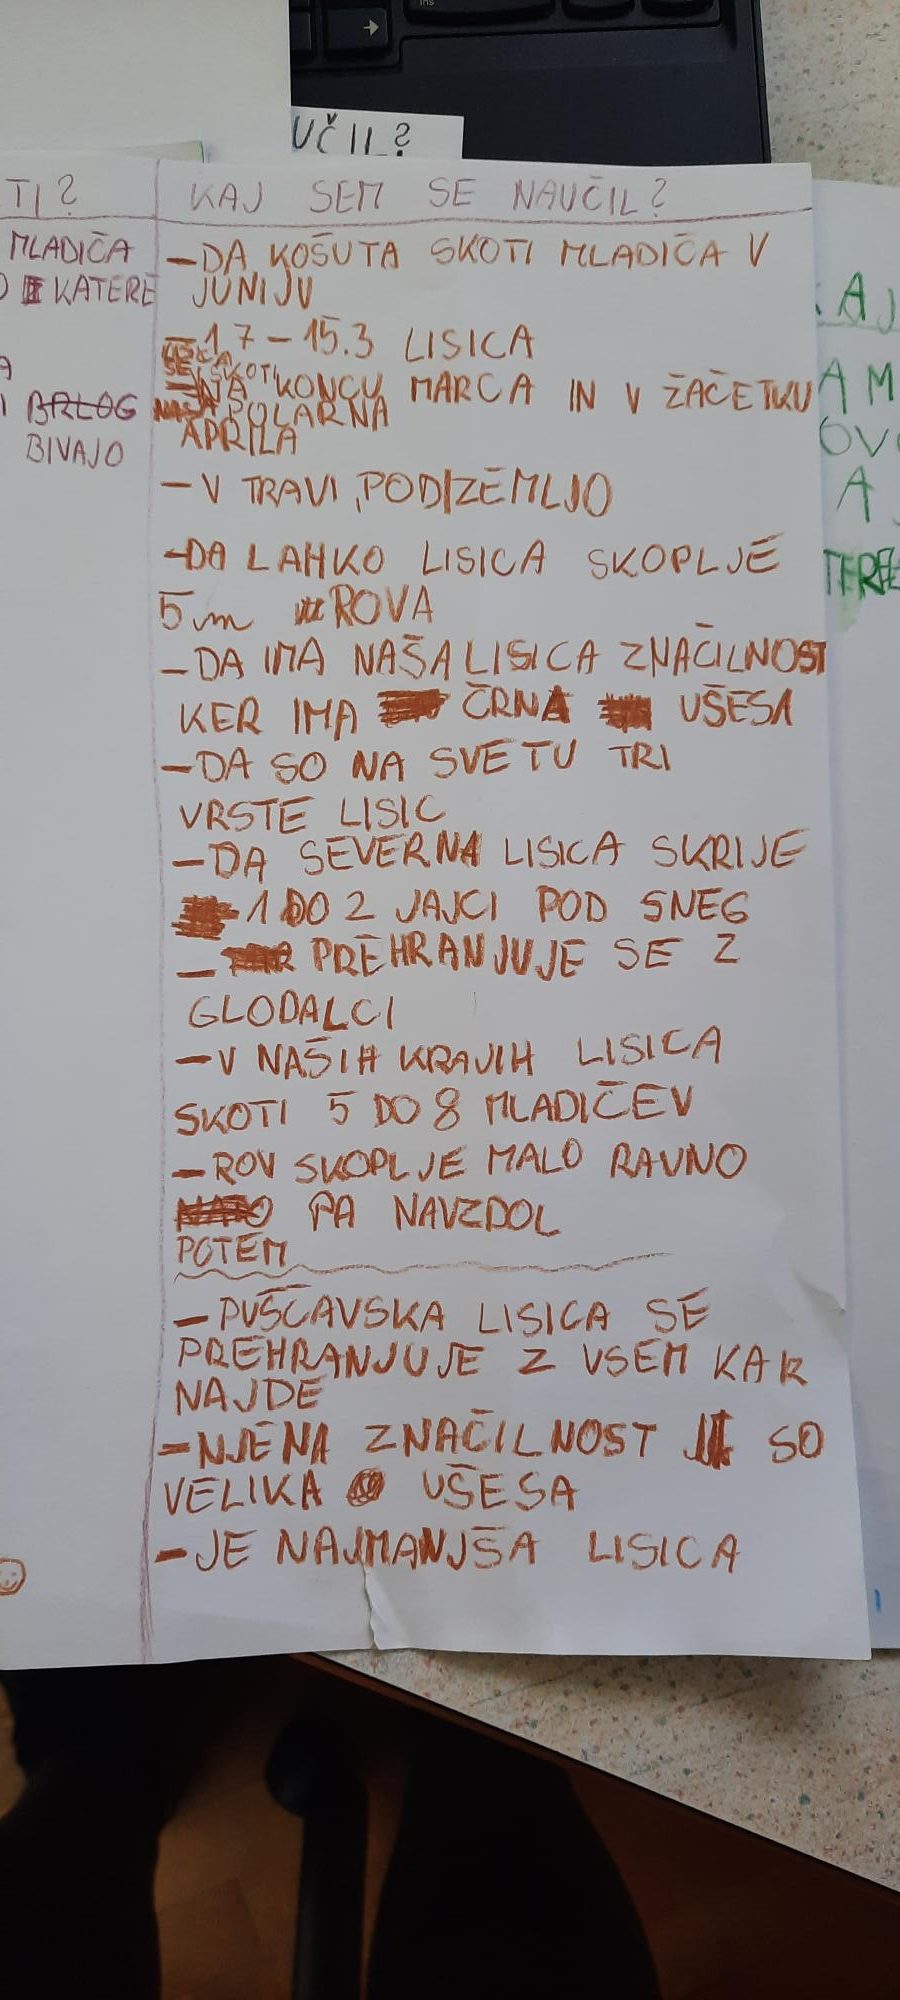 Ins
UČIL?
TI?
MLADIČA
KATERE
BRLOG
BIVAJO
KAJ SEM SE NAUČIL?
-DA KOŠUTA SKOTI MLADIČA V
JUNIJU
-1.7-15.3 LISICA
SE SKOTI
-NA KONCU MARCA IN V ŽAČETKU
NAŠA POLARNA
APRILA
-V TRAVI, POD ZEMLJO
-DA LAHKO LISICA SKOPLJE
5m ROVA
-DA IMA NAŠA LISICA ZNAČILNOST
KER IMA ČRNA UŠESA
-DA SO NA SVETU TRI
VRSTE LISIC
-DA SEVERNA LISICA SKRIJE
1 DO 2 JAJCI POD SNEG
- PREHRANJUJE SE Z
GLODALCI
-V NAŠIH KRAJIH LISICA
SKOTI 5 DO 8 MLADIČEV
-ROV SKOPLJE MALO RAVNO
PA NAVZDOL
POTEM
-PUŠČAVSKA LISICA SE
PREHRANJUJE Z VSEM KAR
NAJDE
-NJENA ZNAČILNOST SO
VELIKA UŠESA
-JE NAJMANJŠA LISICA
AJ
AM
OVO
A
TERE